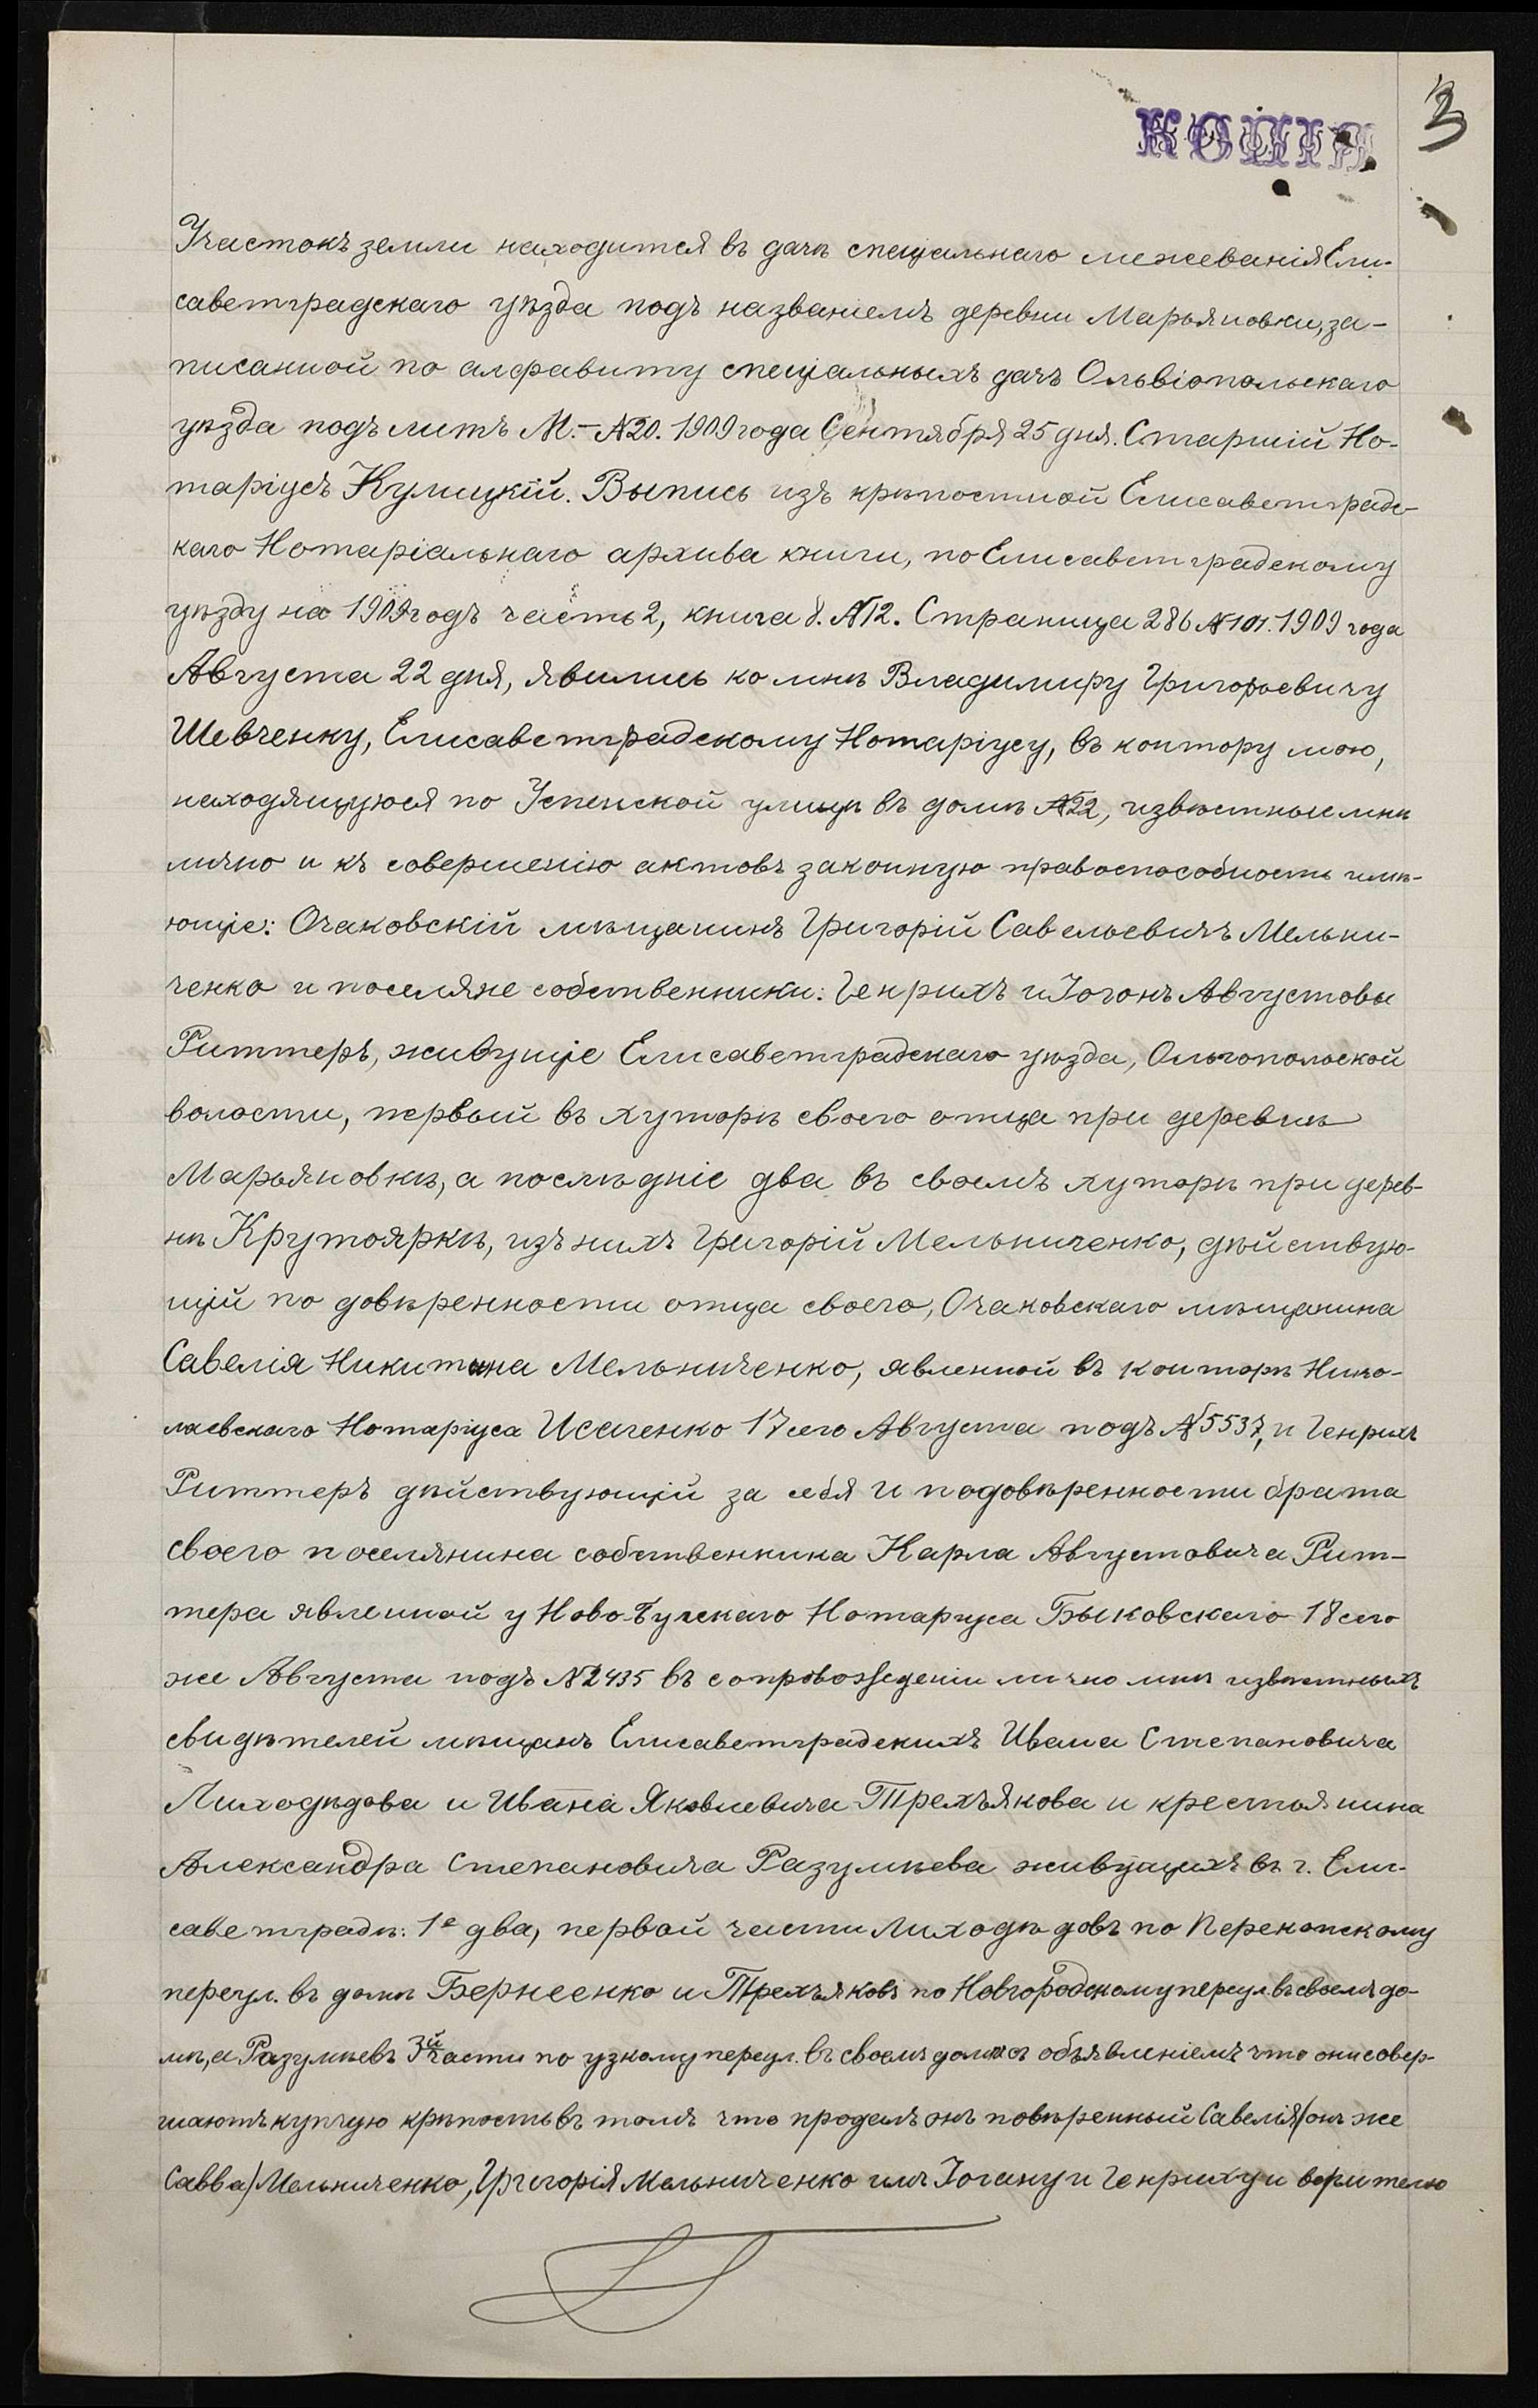 КОПІЯ
3
Участокъ земли находится въ дачѣ спеціальнаго межеванія Ели-
саветградскаго уѣзда подъ названіемъ деревни Марьяновки, за-
писанной по алфавиту спеціальныхъ дачъ Ольвіопольскаго
уѣзда подъ литъ М.- №20. 1909 года Сентября 25 дня. Старшій Но-
таріусъ Кулицкій. Выпись изъ крѣпостной Елисаветградс-
каго Нотаріальнаго архива книги, по Елисаветградскому
уѣзду на 1909 годъ часть 2, книга 8. №12. Страница 286 №101. 1909 года
Августа 22 дня, явились ко мнѣ Владимиру Григорьевичу
Шевченку, Елисаветградскому Нотаріусу, въ контору мою,
находящуюся по Успенской улицѣ въ домѣ №22, извѣстные мнѣ
лично и къ совершенію актовъ законную правоспособность имѣ-
ющіе: Очаковскій мѣщанинъ Григорій Савельевичъ Мельни-
ченко и поселяне собственники: Генрихъ и Іоганъ Августовы
Риттеръ, живущіе Елисаветградскаго уѣзда, Ольгопольской
волости, первый въ хуторѣ своего отца при деревнѣ
Марьяновкѣ, а послѣдніе два въ своемъ хуторѣ при дерев-
нѣ Крутояркѣ, изъ нихъ Григорій Мельниченко, дѣйствую-
щій по довѣренности отца своего, Очаковскаго мѣщанина
Савелія Никитина Мельниченко, явленной въ конторѣ Нико-
лаевскаго Нотаріуса Исаченко 17 сего Августа подъ №5537, и Генрихъ
Риттеръ дѣйствующій за себя и подовѣренности брата
своего поселянина собственника Карла Августовича Рит-
тера явленной у Ново-Бугскаго Нотаріуса Быковскаго 18 сего
же Августа подъ №2435 въ сопровожденіи лично мнѣ извѣстныхъ
свидѣтелей мѣщанъ Елисаветградскихъ Ивана Степановича
Лиходѣдова и Ивана Яковлевича Трехъякова и крестьянина
Александра Степановича Разумѣева живущихъ въ г. Ели-
саветградѣ: 1е два, первой части Лиходѣдовъ по Перекопскому
переул. въ домѣ Бернеенко и Трехъяковъ по Новгородскому переул. въ своемъ до-
мѣ, а Разумѣевъ 3й части по узкому переул. въ своемъ домѣ съ объявленіемъ что они совер-
шаютъ купчую крѣпость въ томъ что продалъ онъ повѣренный Савелія /онъ же
Савва/ Мельниченко, Григорія Мельниченко имъ Іогану и Генриху и верителю